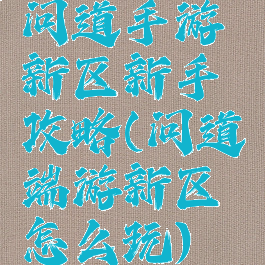 问道手游
新区新手
攻略(问道
端游新区
怎么玩)